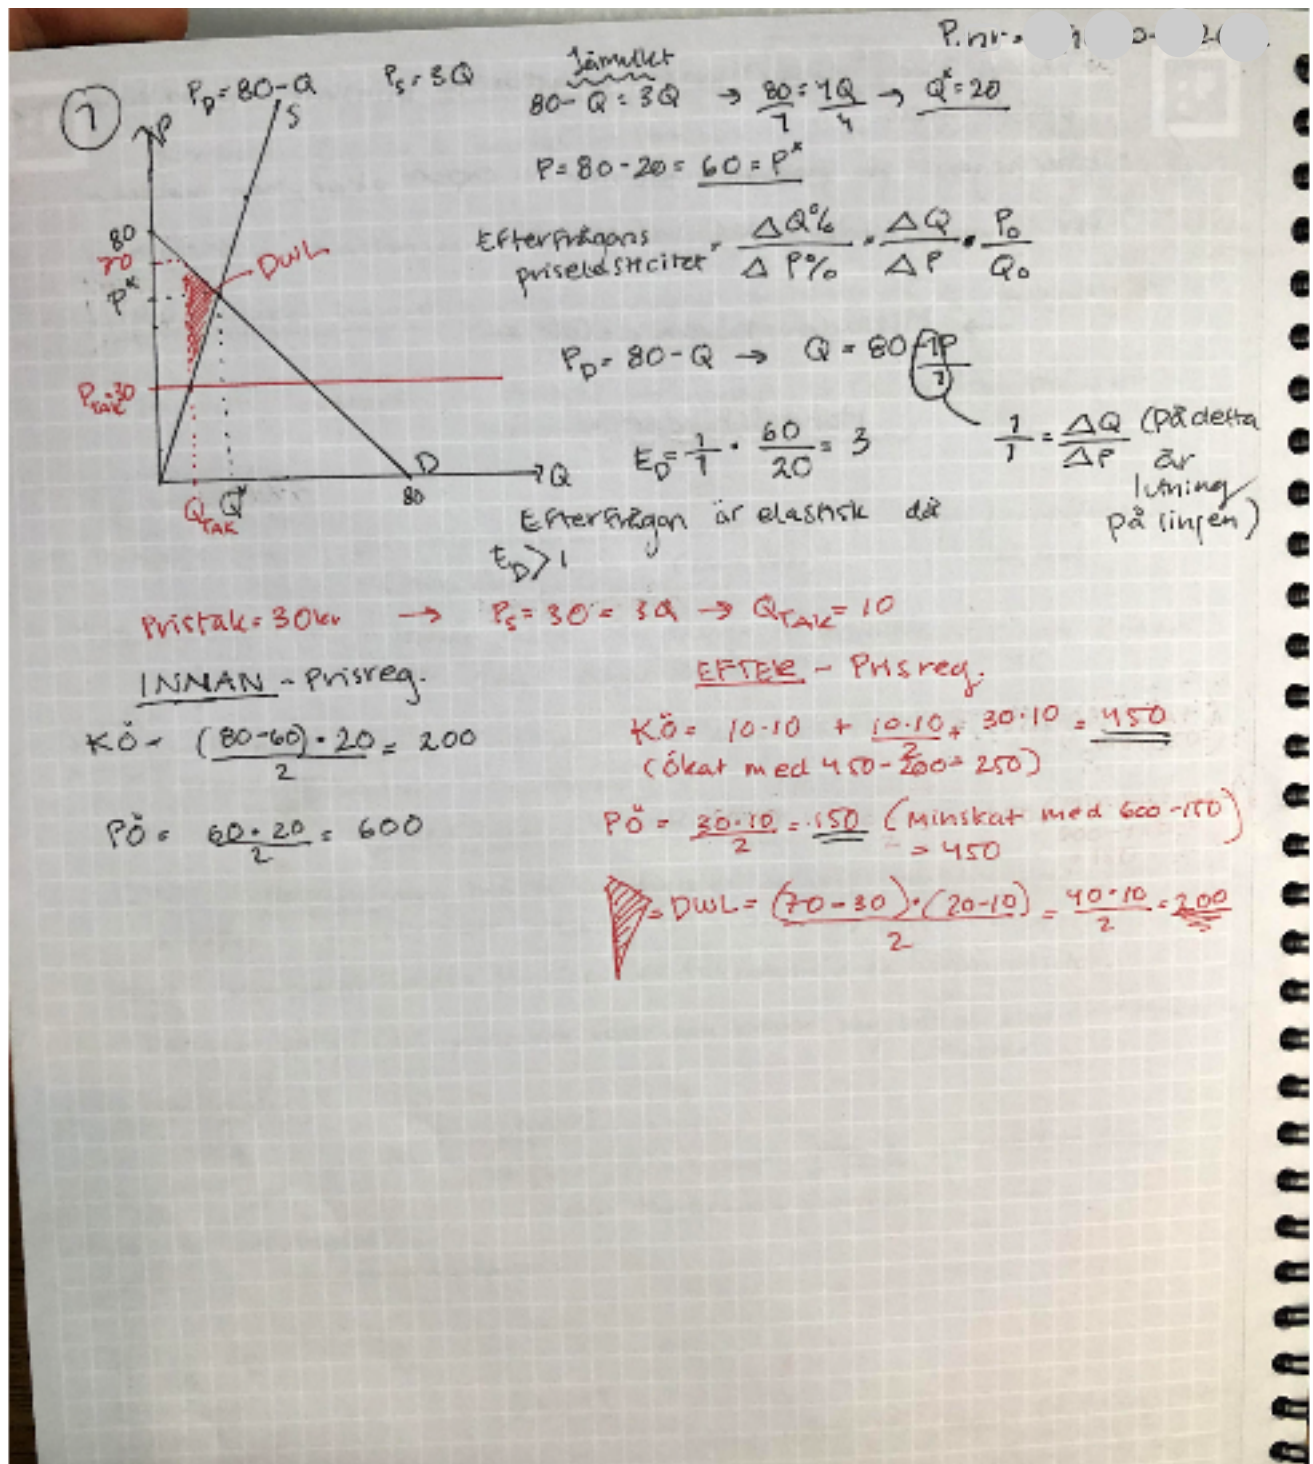 P.nr=
1
P_D=80-Q
P_S=3Q
Jämvikt
80-Q=3Q → 80/1=4Q/4 → Q*=20
P=80-20=60=P*
P
S
80
70
P*
DWL
P_TAK=30
D
Q
80
Q_TAK Q*
Efterfrågans
priselasticitet = ΔQ%/ΔP% = ΔQ/ΔP · P₀/Q₀
P_D=80-Q → Q=80-1P/1
E_D=1/1 · 60/20=3
1/1=ΔQ/ΔP (På detta
är
lutning
på linjen)
Efterfrågan är elastisk då
E_D>1
Pristak=30kr → P_S=30=3Q → Q_TAK=10
INNAN - Prisreg.
KÖ= (80-60)·20/2=200
PÖ= 60·20/2=600
EFTER - Prisreg.
KÖ= 10·10 + 10·10/2 + 30·10=450
(Ökat med 450-200=250)
PÖ= 30·10/2=150 (Minskat med 600-150)
=450
=DWL= (70-30)·(20-10)/2=40·10/2=200